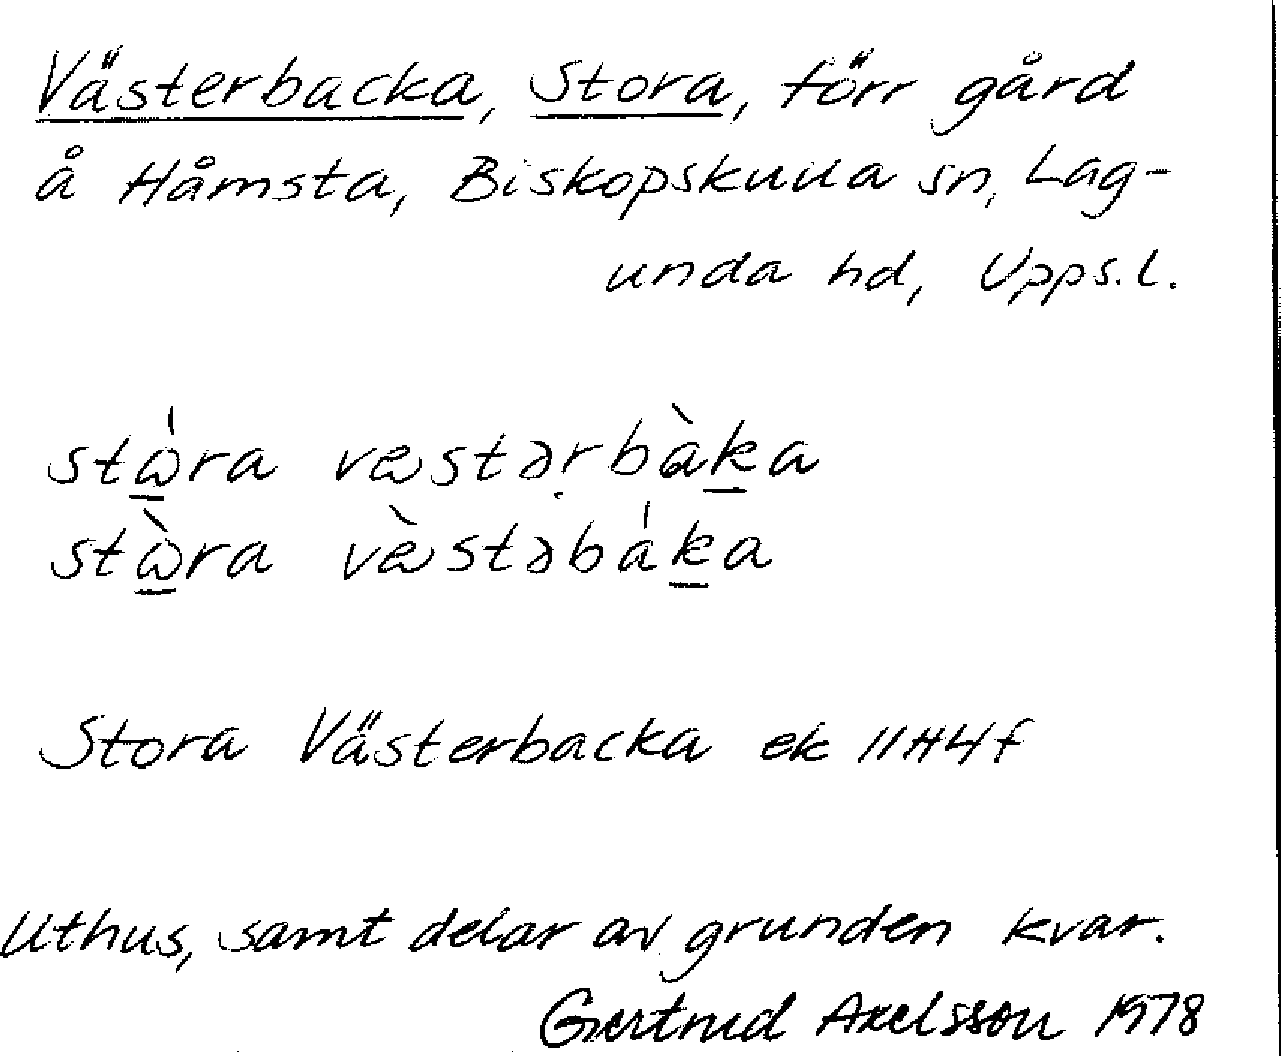 Västerbacka, Stora, förr gård
å Håmsta, Biskopskulla sn, Lag-
unda hd, Upps.l.
stώ̲ra væstərbàk̲a
stὼ̲ra væ̀stəbák̲a
Stora Västerbacka ek 11H4f
Uthus, samt delar av grunden kvar.
Gertrud Axelsson 1978